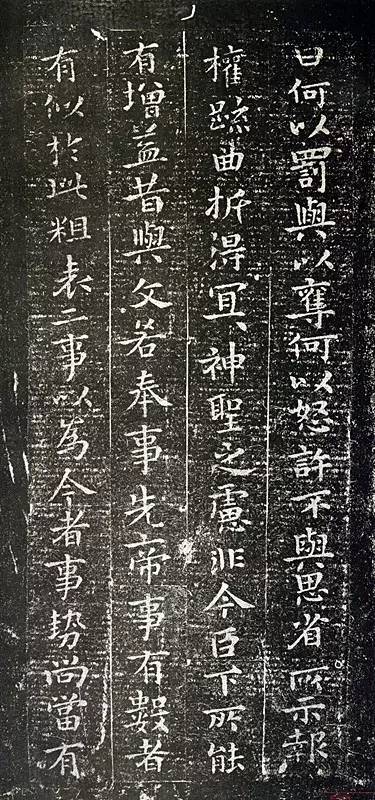 日何以罰與以奪何以怒許不與思省所示報
權疏曲折得冝神聖之慮非今臣下所能
有增益昔與文若奉事先帝事有數者
有似於此粗表二事以為今者事勢尚當有